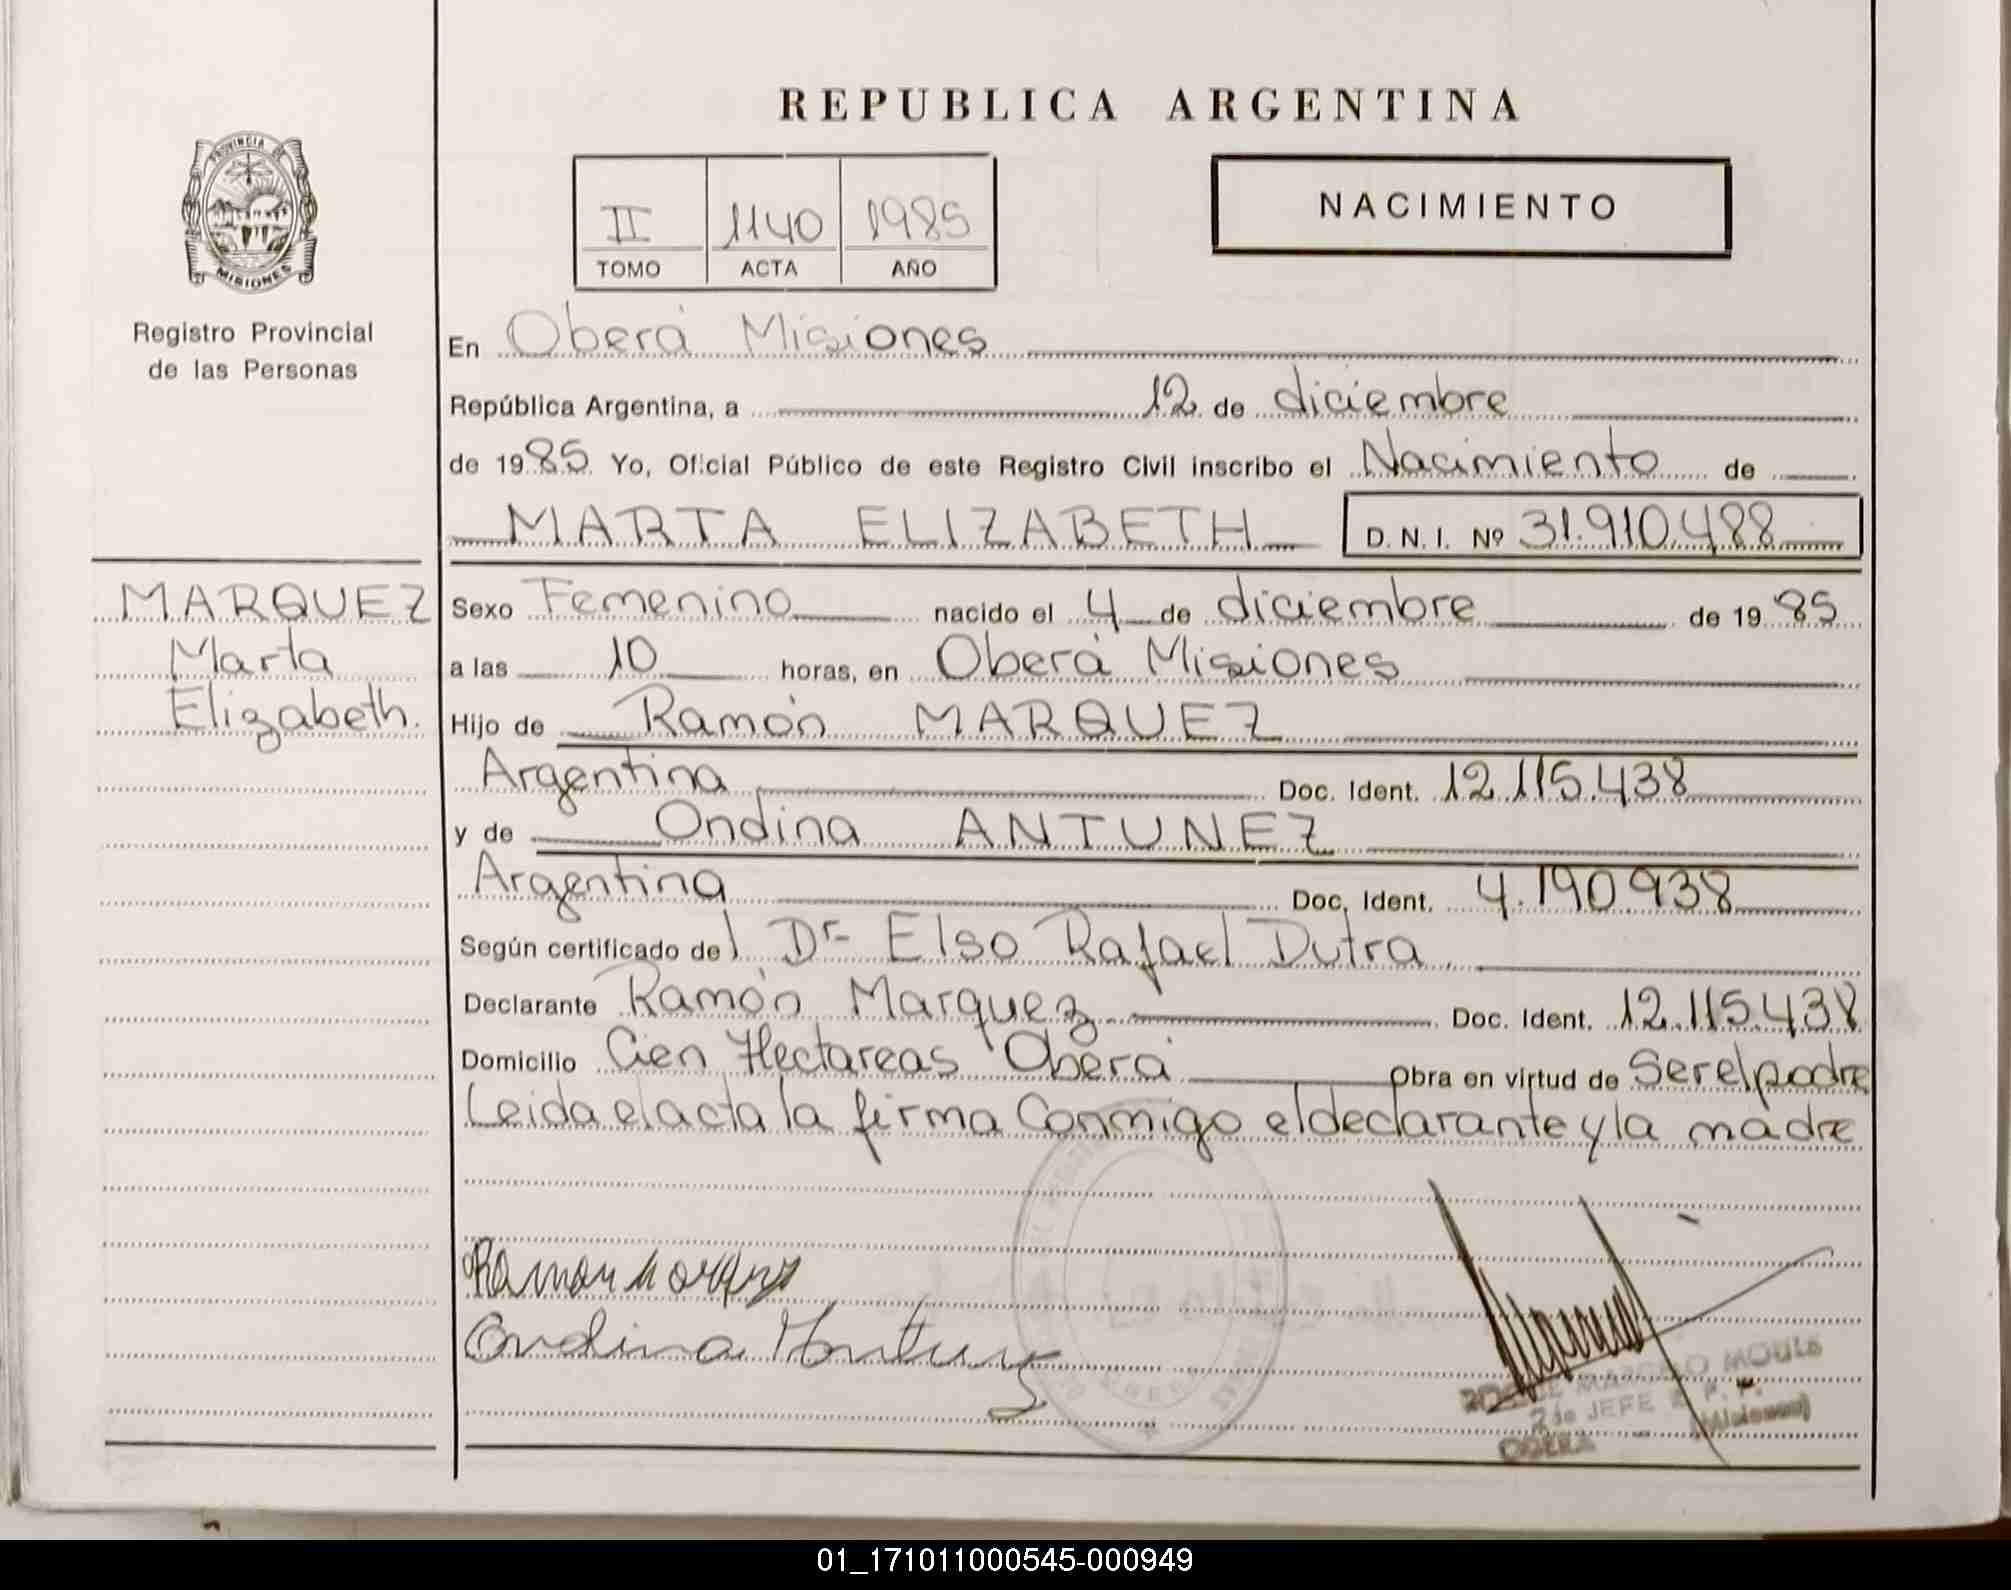 REPUBLICA ARGENTINA
PROVINCIA DE
MISIONES
Registro Provincial
de las Personas
II 1140 1985
TOMO ACTA AÑO
NACIMIENTO
En Oberá Misiones
República Argentina, a 12 de diciembre
de 1985 Yo, Oficial Público de este Registro Civil inscribo el Nacimiento de
MARTA ELIZABETH D. N. I. Nº 31.910.488
MARQUEZ
Marta
Elizabeth.
Sexo Femenino nacido el 4 de diciembre de 1985
a las 10 horas, en Oberá Misiones
Hijo de Ramón MARQUEZ
Argentina Doc. Ident. 12.115.438
y de Ondina ANTUNEZ
Argentina Doc. Ident. 4.190.938
Según certificado del Dr Elso Rafael Dutra
Declarante Ramón Marquez Doc. Ident. 12.115.438
Domicilio Cien Hectareas Oberá Obra en virtud de Ser el padre
Leida el acta la firma Conmigo el declarante y la madre
Ramon
Ondina
MOULS
2do JEFE
OBERA (Misiones)
01_171011000545-000949